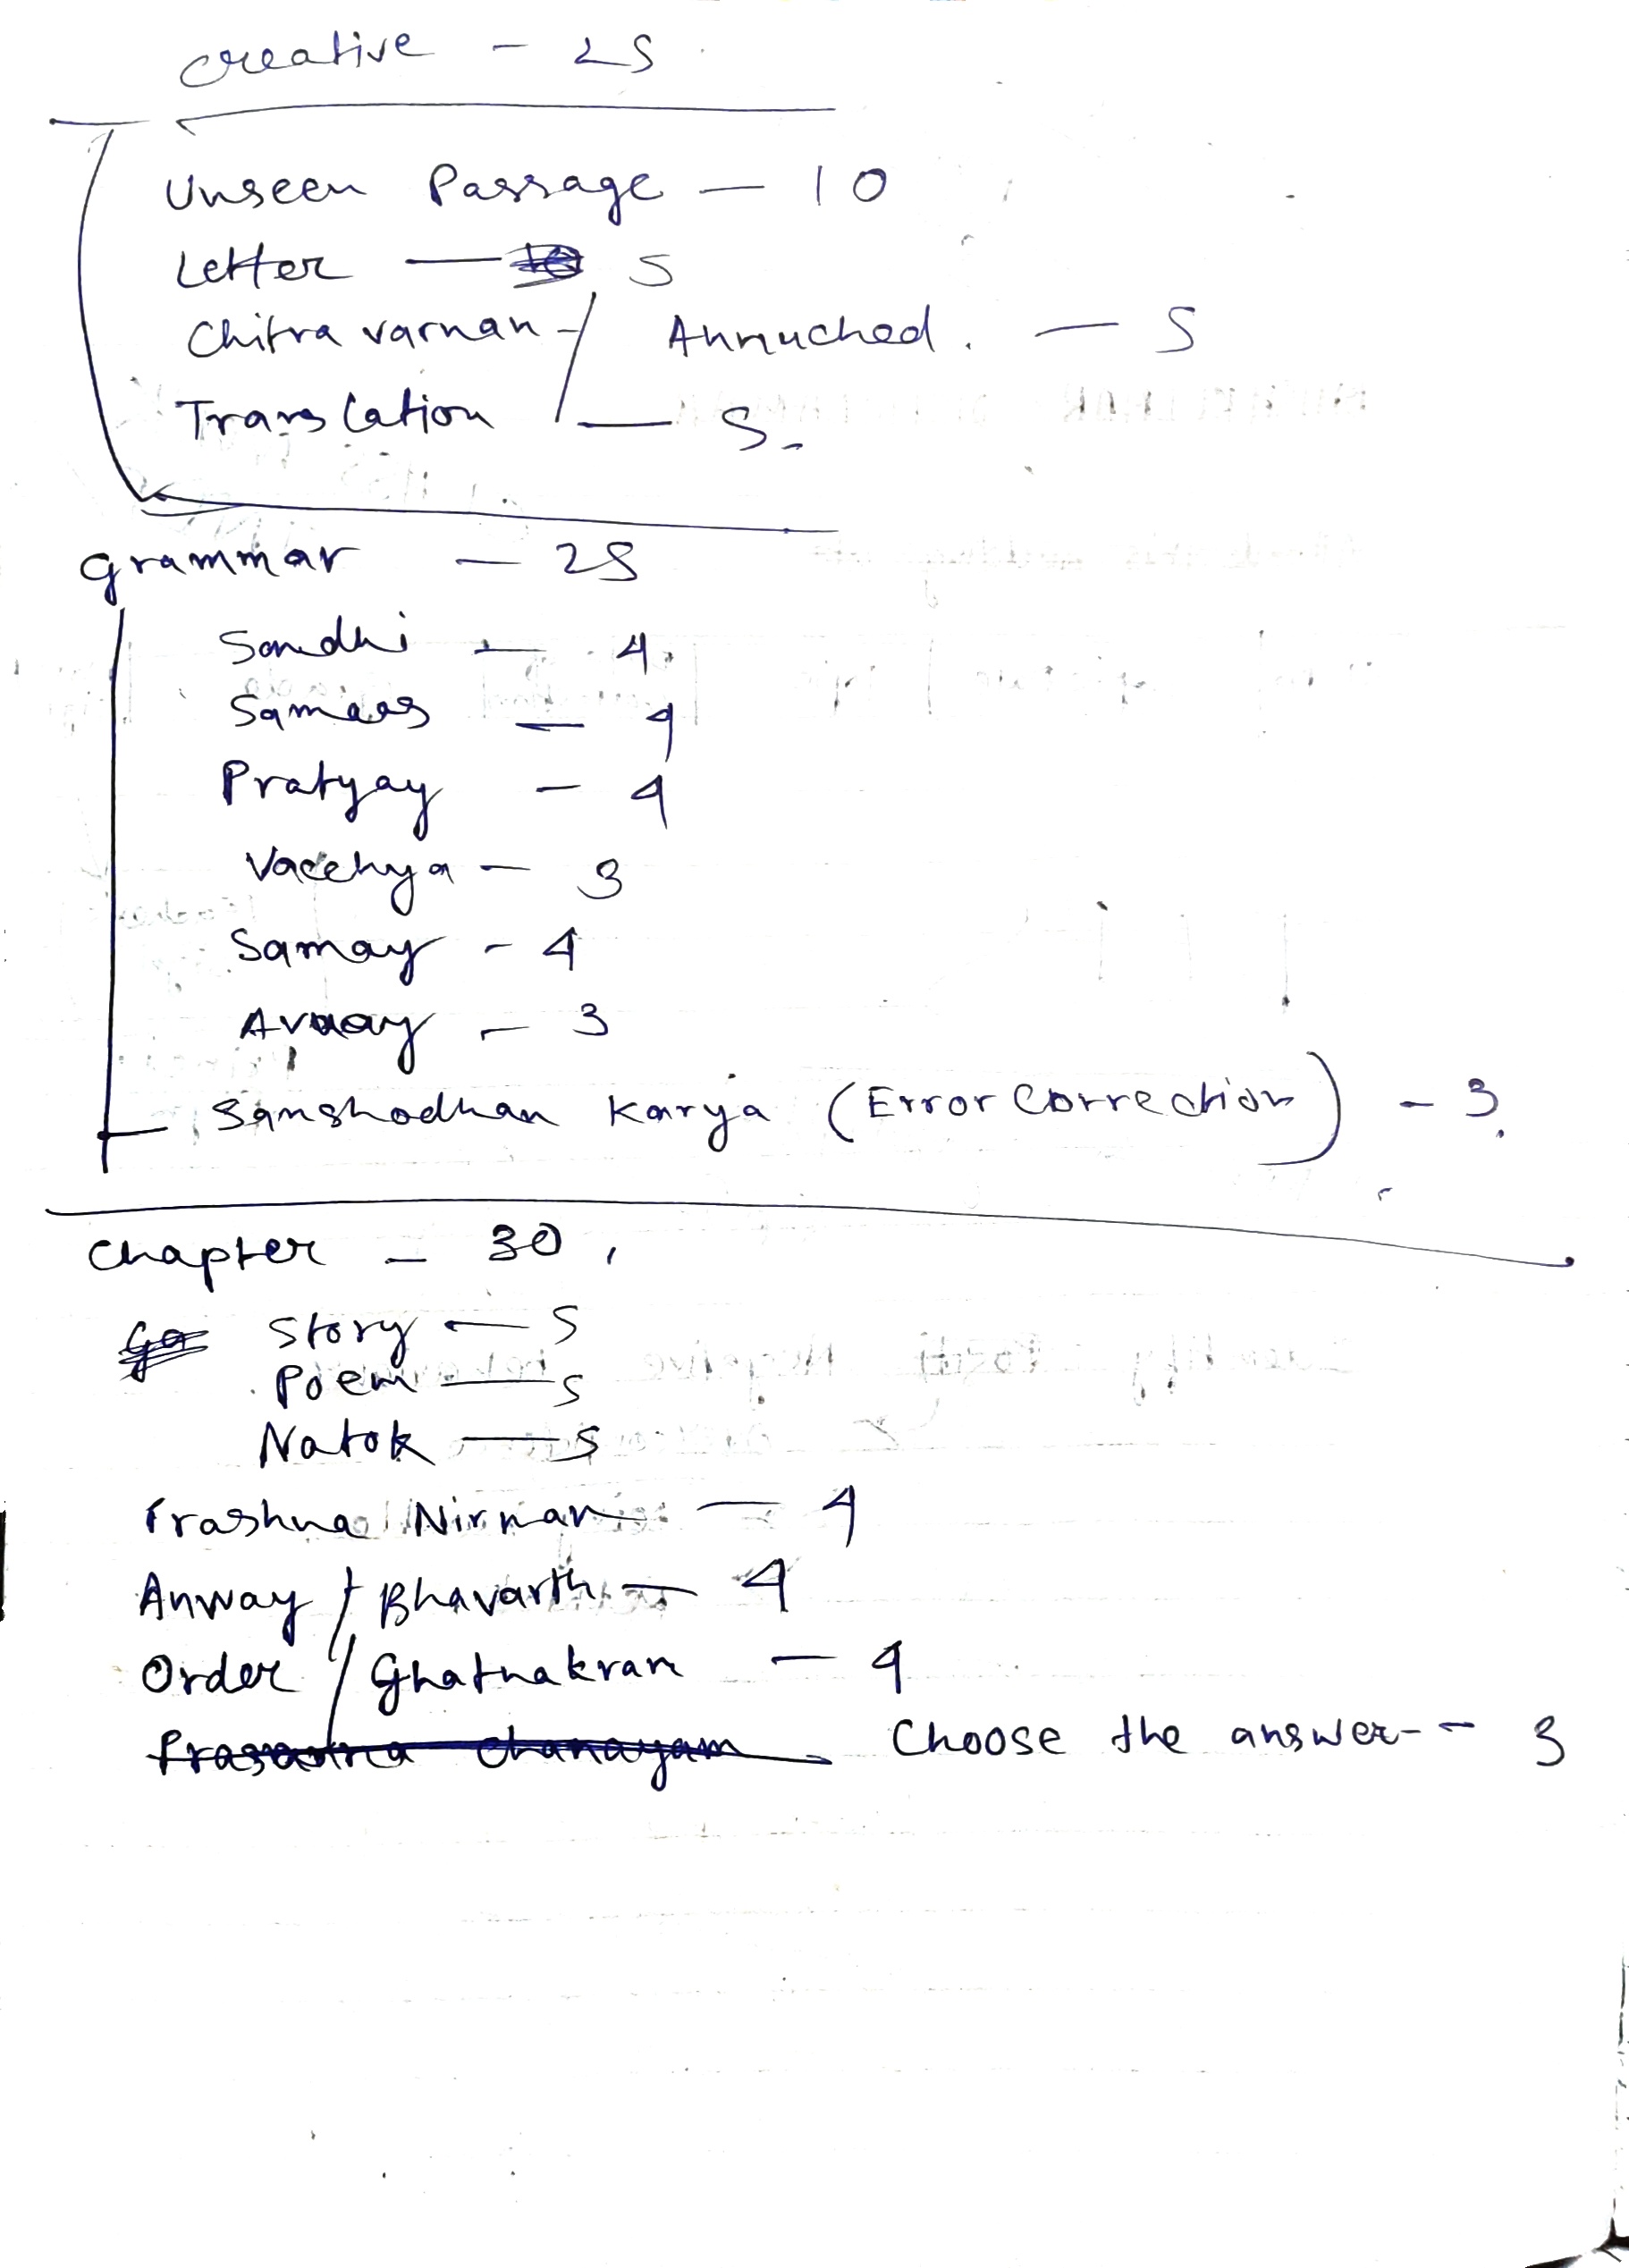 creative - 25
Unseen Passage - 10
Letter - 5
Chitra varnan / Annuched. - 5
Translation - 5.
grammar - 25
Sandhi - 4.
Samaas - 4
Pratyay - 4
Vacchya - 3
Samay - 4
Avyay - 3
Sanshodhan Karya (Error Correction) - 3.
Chapter - 30.
Story - 5
Poem - 5
Natok - 5
Prashna Nirman - 4
Anway / Bhavarth - 4
Order / Ghatnakram - 4
Choose the answer - - 3